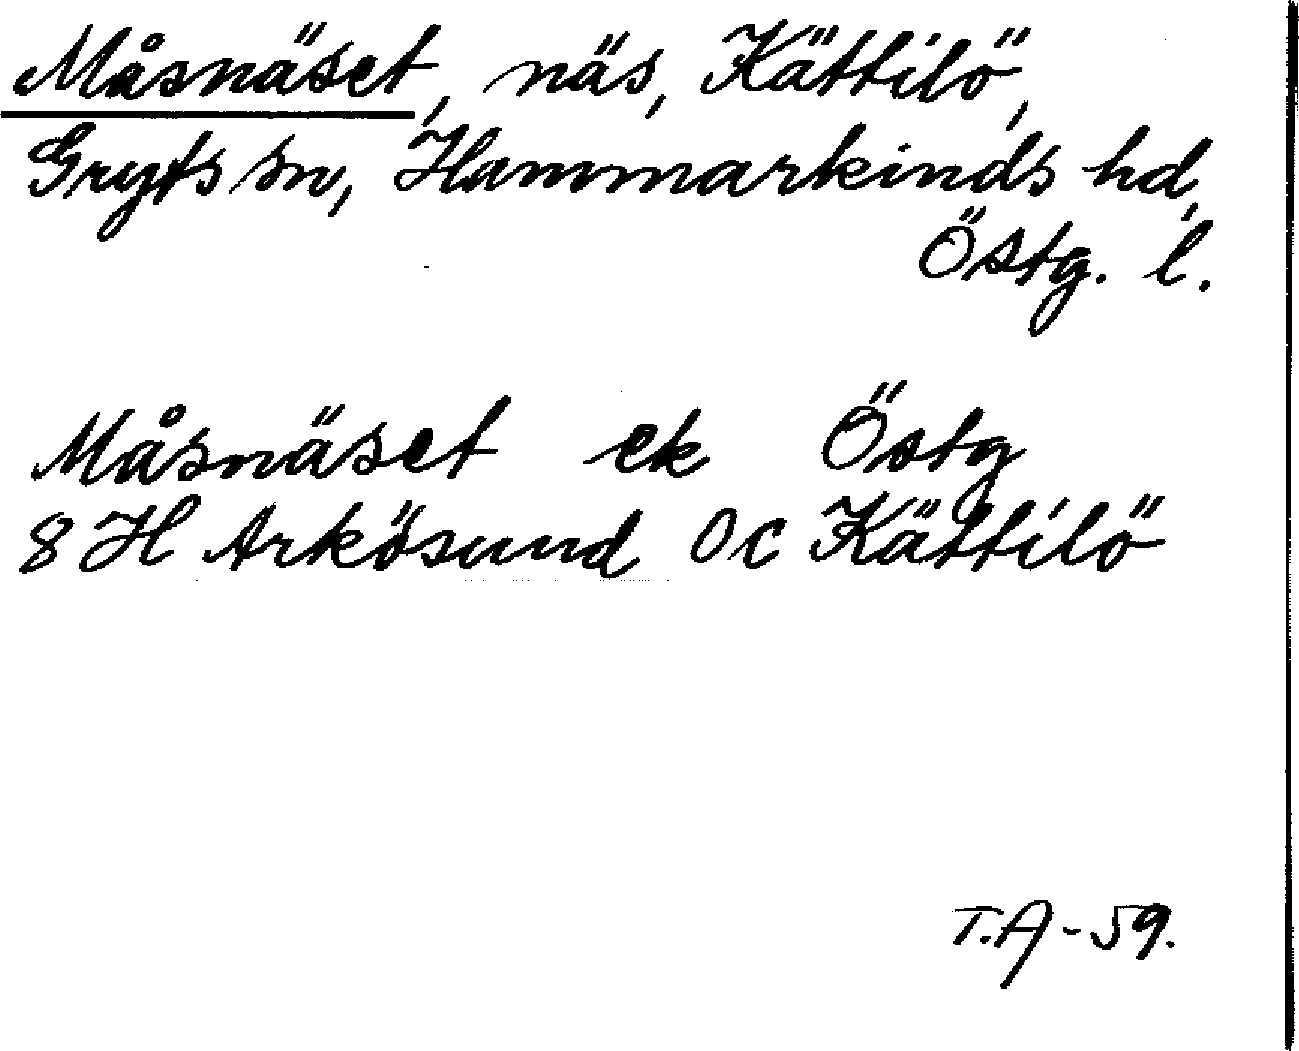 Måsnäset, näs, Kättilö,
Gryts sn, Hammarkinds hd,
Östg. l.
Måsnäset ek Östg
8 H Arkösund 0c Kättilö
T.A-59.